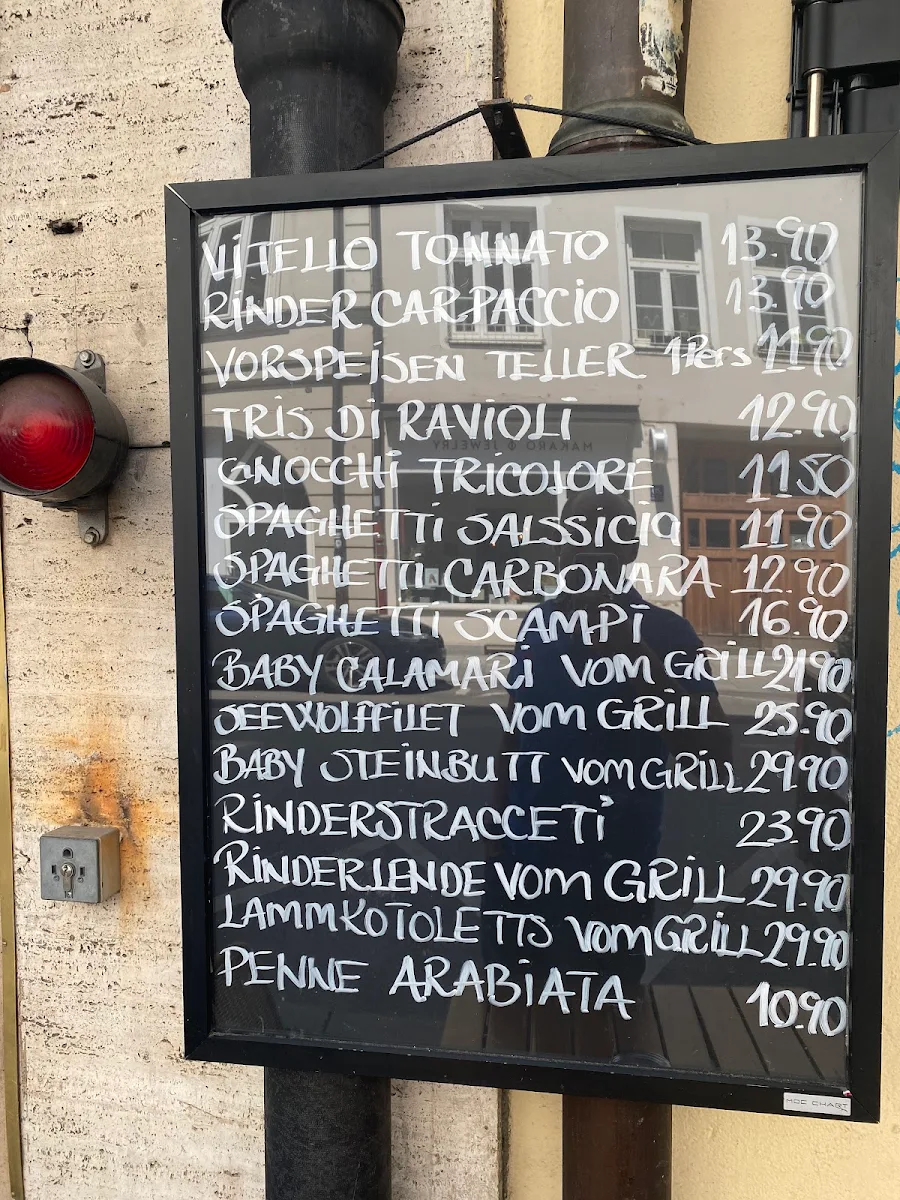 VITELLO TONNATO 13.90
RINDER CARPACCIO 13.90
VORSPEISEN TELLER 1Pers 11.90
TRIS DI RAVIOLI 12.90
GNOCCHI TRICOLORE 11.50
SPAGHETTI SALSSICIA 11.90
SPAGHETTI CARBONARA 12.90
SPAGHETTI SCAMPI 16.90
BABY CALAMARI VOM GRILL 21.90
SEEWOLFFILET VOM GRILL 25.90
BABY STEINBUTT VOM GRILL 29.90
RINDERSTRACCETI 23.90
RINDERLENDE VOM GRILL 29.90
LAMMKOTOLETTS VOM GRILL 29.90
PENNE ARABIATA 10.90
MAKARO & JEWELRY